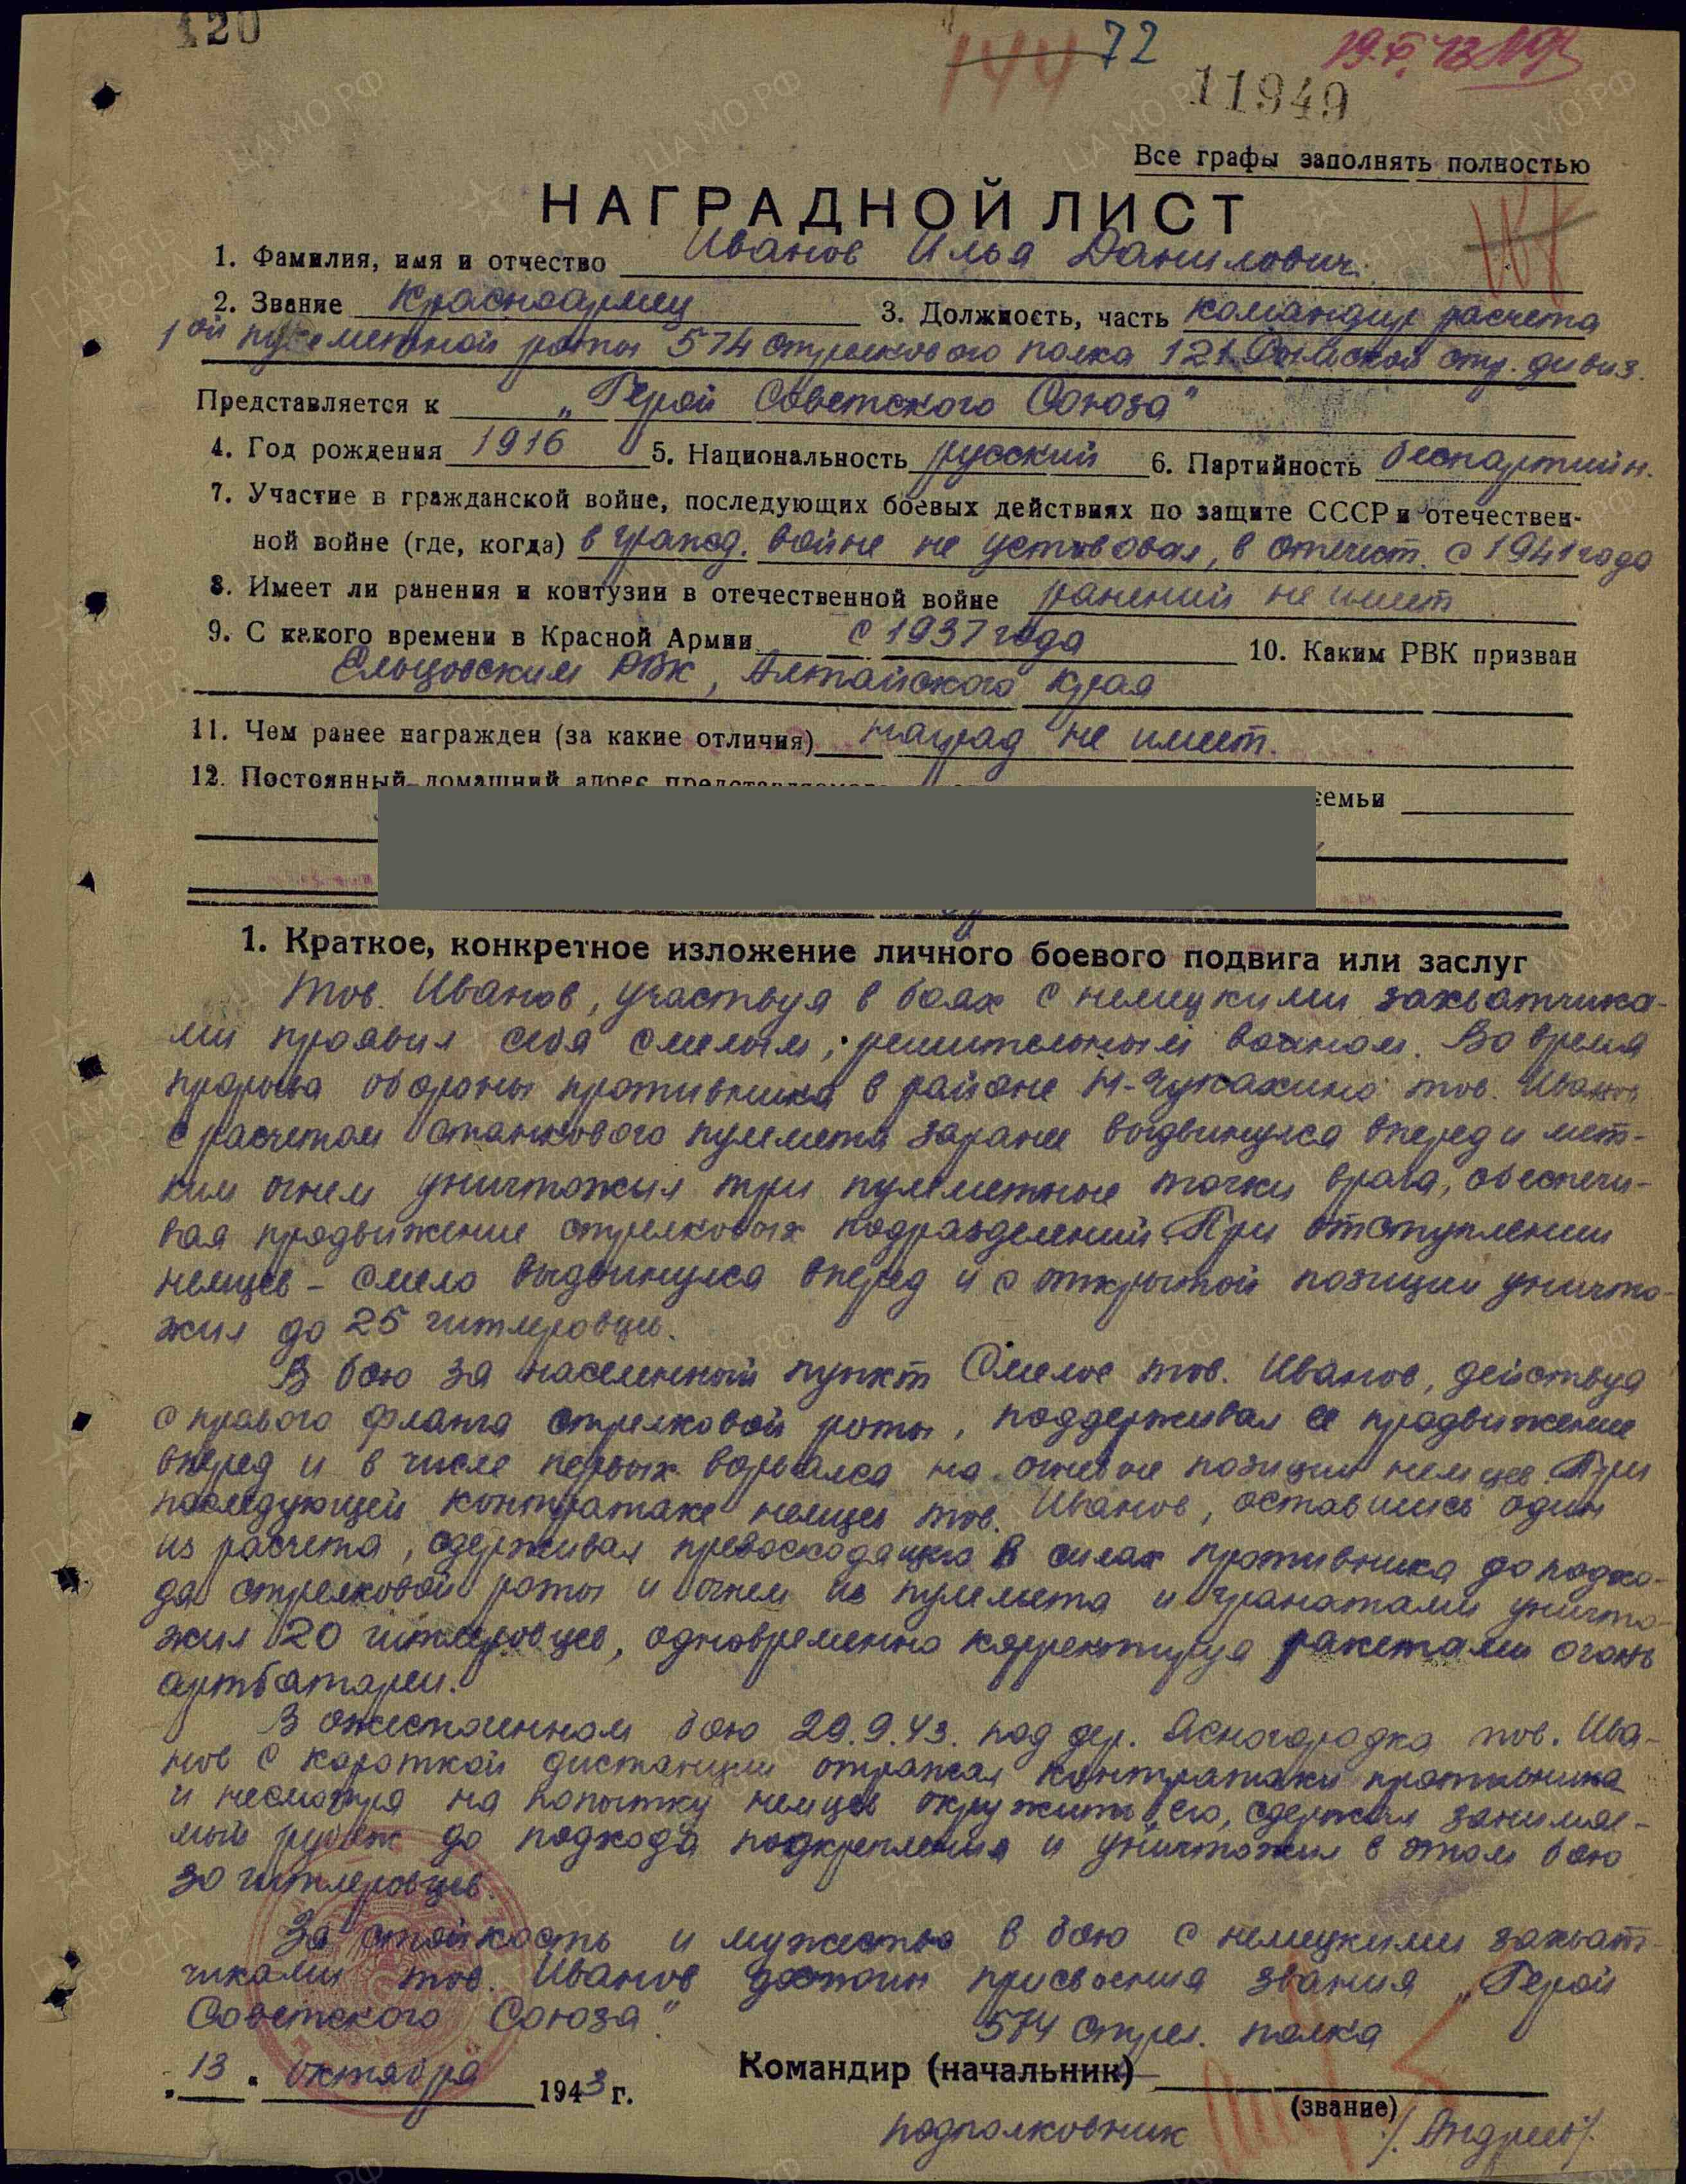 120
144 72
19.XI.43
11949
Все графы заполнять полностью
НАГРАДНОЙ ЛИСТ
1. Фамилия, имя и отчество Иванов Илья Данилович.
2. Звание Красноармеец 3. Должность, часть командир расчета
1ой пулеметной роты 574 стрелкового полка 121 стр. дивиз.
Представляется к „Герой Советского Союза"
4. Год рождения 1916 5. Национальность русский 6. Партийность беспартийн.
7. Участие в гражданской войне, последующих боевых действиях по защите СССР и отечествен-
ной войне (где, когда) в гражд. войне не участвовал, в отечест. с 1941 года
8. Имеет ли ранения и контузии в отечественной войне ранений не имеет
9. С какого времени в Красной Армии с 1937 года 10. Каким РВК призван
Ельцовским РВК, Алтайского края
11. Чем ранее награжден (за какие отличия) наград не имеет.
12. Постоянный домашний адрес представляемого семьи
1. Краткое, конкретное изложение личного боевого подвига или заслуг
Тов. Иванов, участвуя в боях с немецкими захватчика-
ми проявил себя смелым, решительным воином. Во время
прорыва обороны противника в районе Н-Чупахино тов. Иванов
с расчетом станкового пулемета заранее выдвинулся вперед и мет-
ким огнем уничтожил три пулеметные точки врага, обеспечи-
вая продвижение стрелковых подразделений. При отступлении
немцев - смело выдвинулся вперед и с открытой позиции уничто-
жил до 25 гитлеровцев.
В бою за населенный пункт Смелое тов. Иванов, действуя
с правого фланга стрелковой роты, поддерживал ее продвижение
вперед и в числе первых ворвался на огневые позиции немцев. При
последующей контратаке немцев тов. Иванов, оставшись один
из расчета, сдерживал превосходящего в силах противника до подхо-
да стрелковой роты и огнем из пулемета и гранатами уничто-
жил 20 гитлеровцев, одновременно корректируя ракетами огонь
артбатареи.
В ожесточенном бою 29.9.43. под дер. Ясногородка тов. Ива-
нов с короткой дистанции отражал контратаки противника
и несмотря на попытку немцев окружить его, сдержал занимае-
мый рубеж до подхода подкрепления и уничтожил в этом бою
30 гитлеровцев.
За стойкость и мужество в бою с немецкими захват-
чиками тов. Иванов достоин присвоения звания „Герой
Советского Союза".
574 стрел. полка
Командир (начальник)
(звание)
„13" октября 1943 г.
подполковник /Андреев/